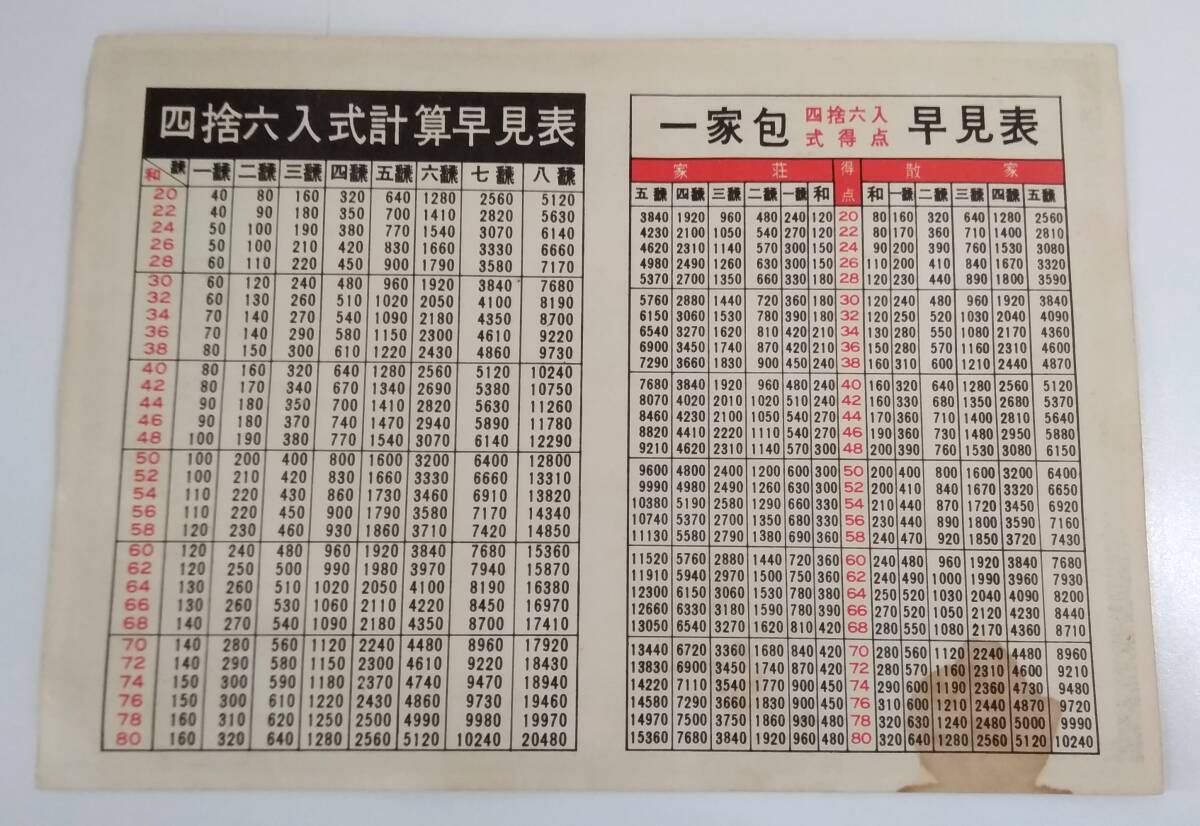 四捨六入式計算早見表
和 飜 一飜 二飜 三飜 四飜 五飜 六飜 七飜 八飜
20 40 80 160 320 640 1280 2560 5120
22 40 90 180 350 700 1410 2820 5630
24 50 100 190 380 770 1540 3070 6140
26 50 100 210 420 830 1660 3330 6660
28 60 110 220 450 900 1790 3580 7170
30 60 120 240 480 960 1920 3840 7680
32 60 130 260 510 1020 2050 4100 8190
34 70 140 270 540 1090 2180 4350 8700
36 70 140 290 580 1150 2300 4610 9220
38 80 150 300 610 1220 2430 4860 9730
40 80 160 320 640 1280 2560 5120 10240
42 80 170 340 670 1340 2690 5380 10750
44 90 180 350 700 1410 2820 5630 11260
46 90 180 370 740 1470 2940 5890 11780
48 100 190 380 770 1540 3070 6140 12290
50 100 200 400 800 1600 3200 6400 12800
52 100 210 420 830 1660 3330 6660 13310
54 110 220 430 860 1730 3460 6910 13820
56 110 220 450 900 1790 3580 7170 14340
58 120 230 460 930 1860 3710 7420 14850
60 120 240 480 960 1920 3840 7680 15360
62 120 250 500 990 1980 3970 7940 15870
64 130 260 510 1020 2050 4100 8190 16380
66 130 260 530 1060 2110 4220 8450 16970
68 140 270 540 1090 2180 4350 8700 17410
70 140 280 560 1120 2240 4480 8960 17920
72 140 290 580 1150 2300 4610 9220 18430
74 150 300 590 1180 2370 4740 9470 18940
76 150 300 610 1220 2430 4860 9730 19460
78 160 310 620 1250 2500 4990 9980 19970
80 160 320 640 1280 2560 5120 10240 20480
一家包 四捨六入式得点 早見表
家 荘 得点 散 家
五飜 四飜 三飜 二飜 一飜 和 和 一飜 二飜 三飜 四飜 五飜
3840 1920 960 480 240 120 20 80 160 320 640 1280 2560
4230 2100 1050 540 270 120 22 80 170 360 710 1400 2810
4620 2310 1140 570 300 150 24 90 200 390 760 1530 3080
4980 2490 1260 630 300 150 26 110 200 410 840 1670 3320
5370 2700 1350 660 330 180 28 120 230 440 890 1800 3590
5760 2880 1440 720 360 180 30 120 240 480 960 1920 3840
6150 3060 1530 780 390 180 32 120 250 520 1030 2040 4090
6540 3270 1620 810 420 210 34 130 280 550 1080 2170 4360
6900 3450 1740 870 420 210 36 150 280 570 1160 2310 4600
7290 3660 1830 900 450 240 38 160 310 600 1210 2440 4870
7680 3840 1920 960 480 240 40 160 320 640 1280 2560 5120
8070 4020 2010 1020 510 240 42 160 330 680 1350 2680 5370
8460 4230 2100 1050 540 270 44 170 360 710 1400 2810 5640
8820 4410 2220 1110 540 270 46 190 360 730 1480 2950 5880
9210 4620 2310 1140 570 300 48 200 390 760 1530 3080 6150
9600 4800 2400 1200 600 300 50 200 400 800 1600 3200 6400
9990 4980 2490 1260 630 300 52 200 410 840 1670 3320 6650
10380 5190 2580 1290 660 330 54 210 440 870 1720 3450 6920
10740 5370 2700 1350 680 330 56 230 440 890 1800 3590 7160
11130 5580 2790 1380 690 360 58 240 470 920 1850 3720 7430
11520 5760 2880 1440 720 360 60 240 480 960 1920 3840 7680
11910 5940 2970 1500 750 360 62 240 490 1000 1990 3960 7930
12300 6150 3060 1530 780 380 64 250 520 1030 2040 4090 8200
12660 6330 3180 1590 780 390 66 270 520 1050 2120 4230 8440
13050 6540 3270 1620 810 420 68 280 550 1080 2170 4360 8710
13440 6720 3360 1680 840 420 70 280 560 1120 2240 4480 8960
13830 6900 3450 1740 870 420 72 280 570 1160 2310 4600 9210
14220 7110 3540 1770 900 450 74 290 600 1190 2360 4730 9480
14580 7290 3660 1830 900 450 76 310 600 1210 2440 4870 9720
14970 7500 3750 1860 930 480 78 320 630 1240 2480 5000 9990
15360 7680 3840 1920 960 480 80 320 640 1280 2560 5120 10240